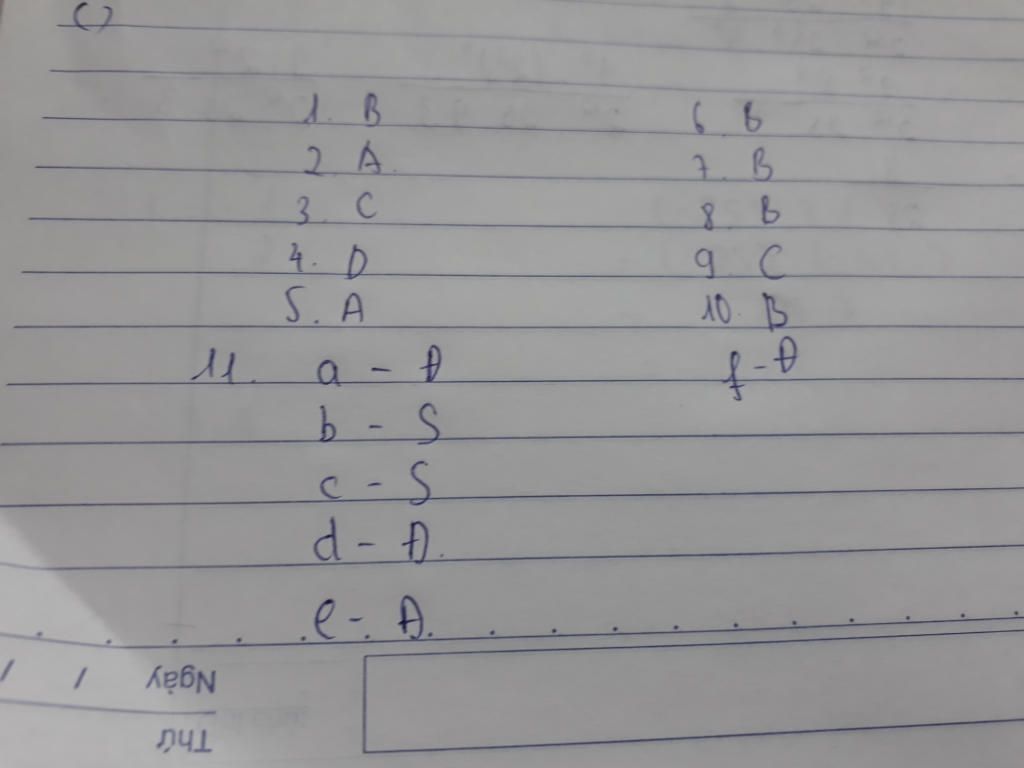 1. B 6 B
2 A. 7. B
3. C 8. B
4. D 9 C
5. A 10. B
11. a - Đ f - Đ
b - S
c - S
d - Đ.
e - Đ.
Ngày / /
Thứ